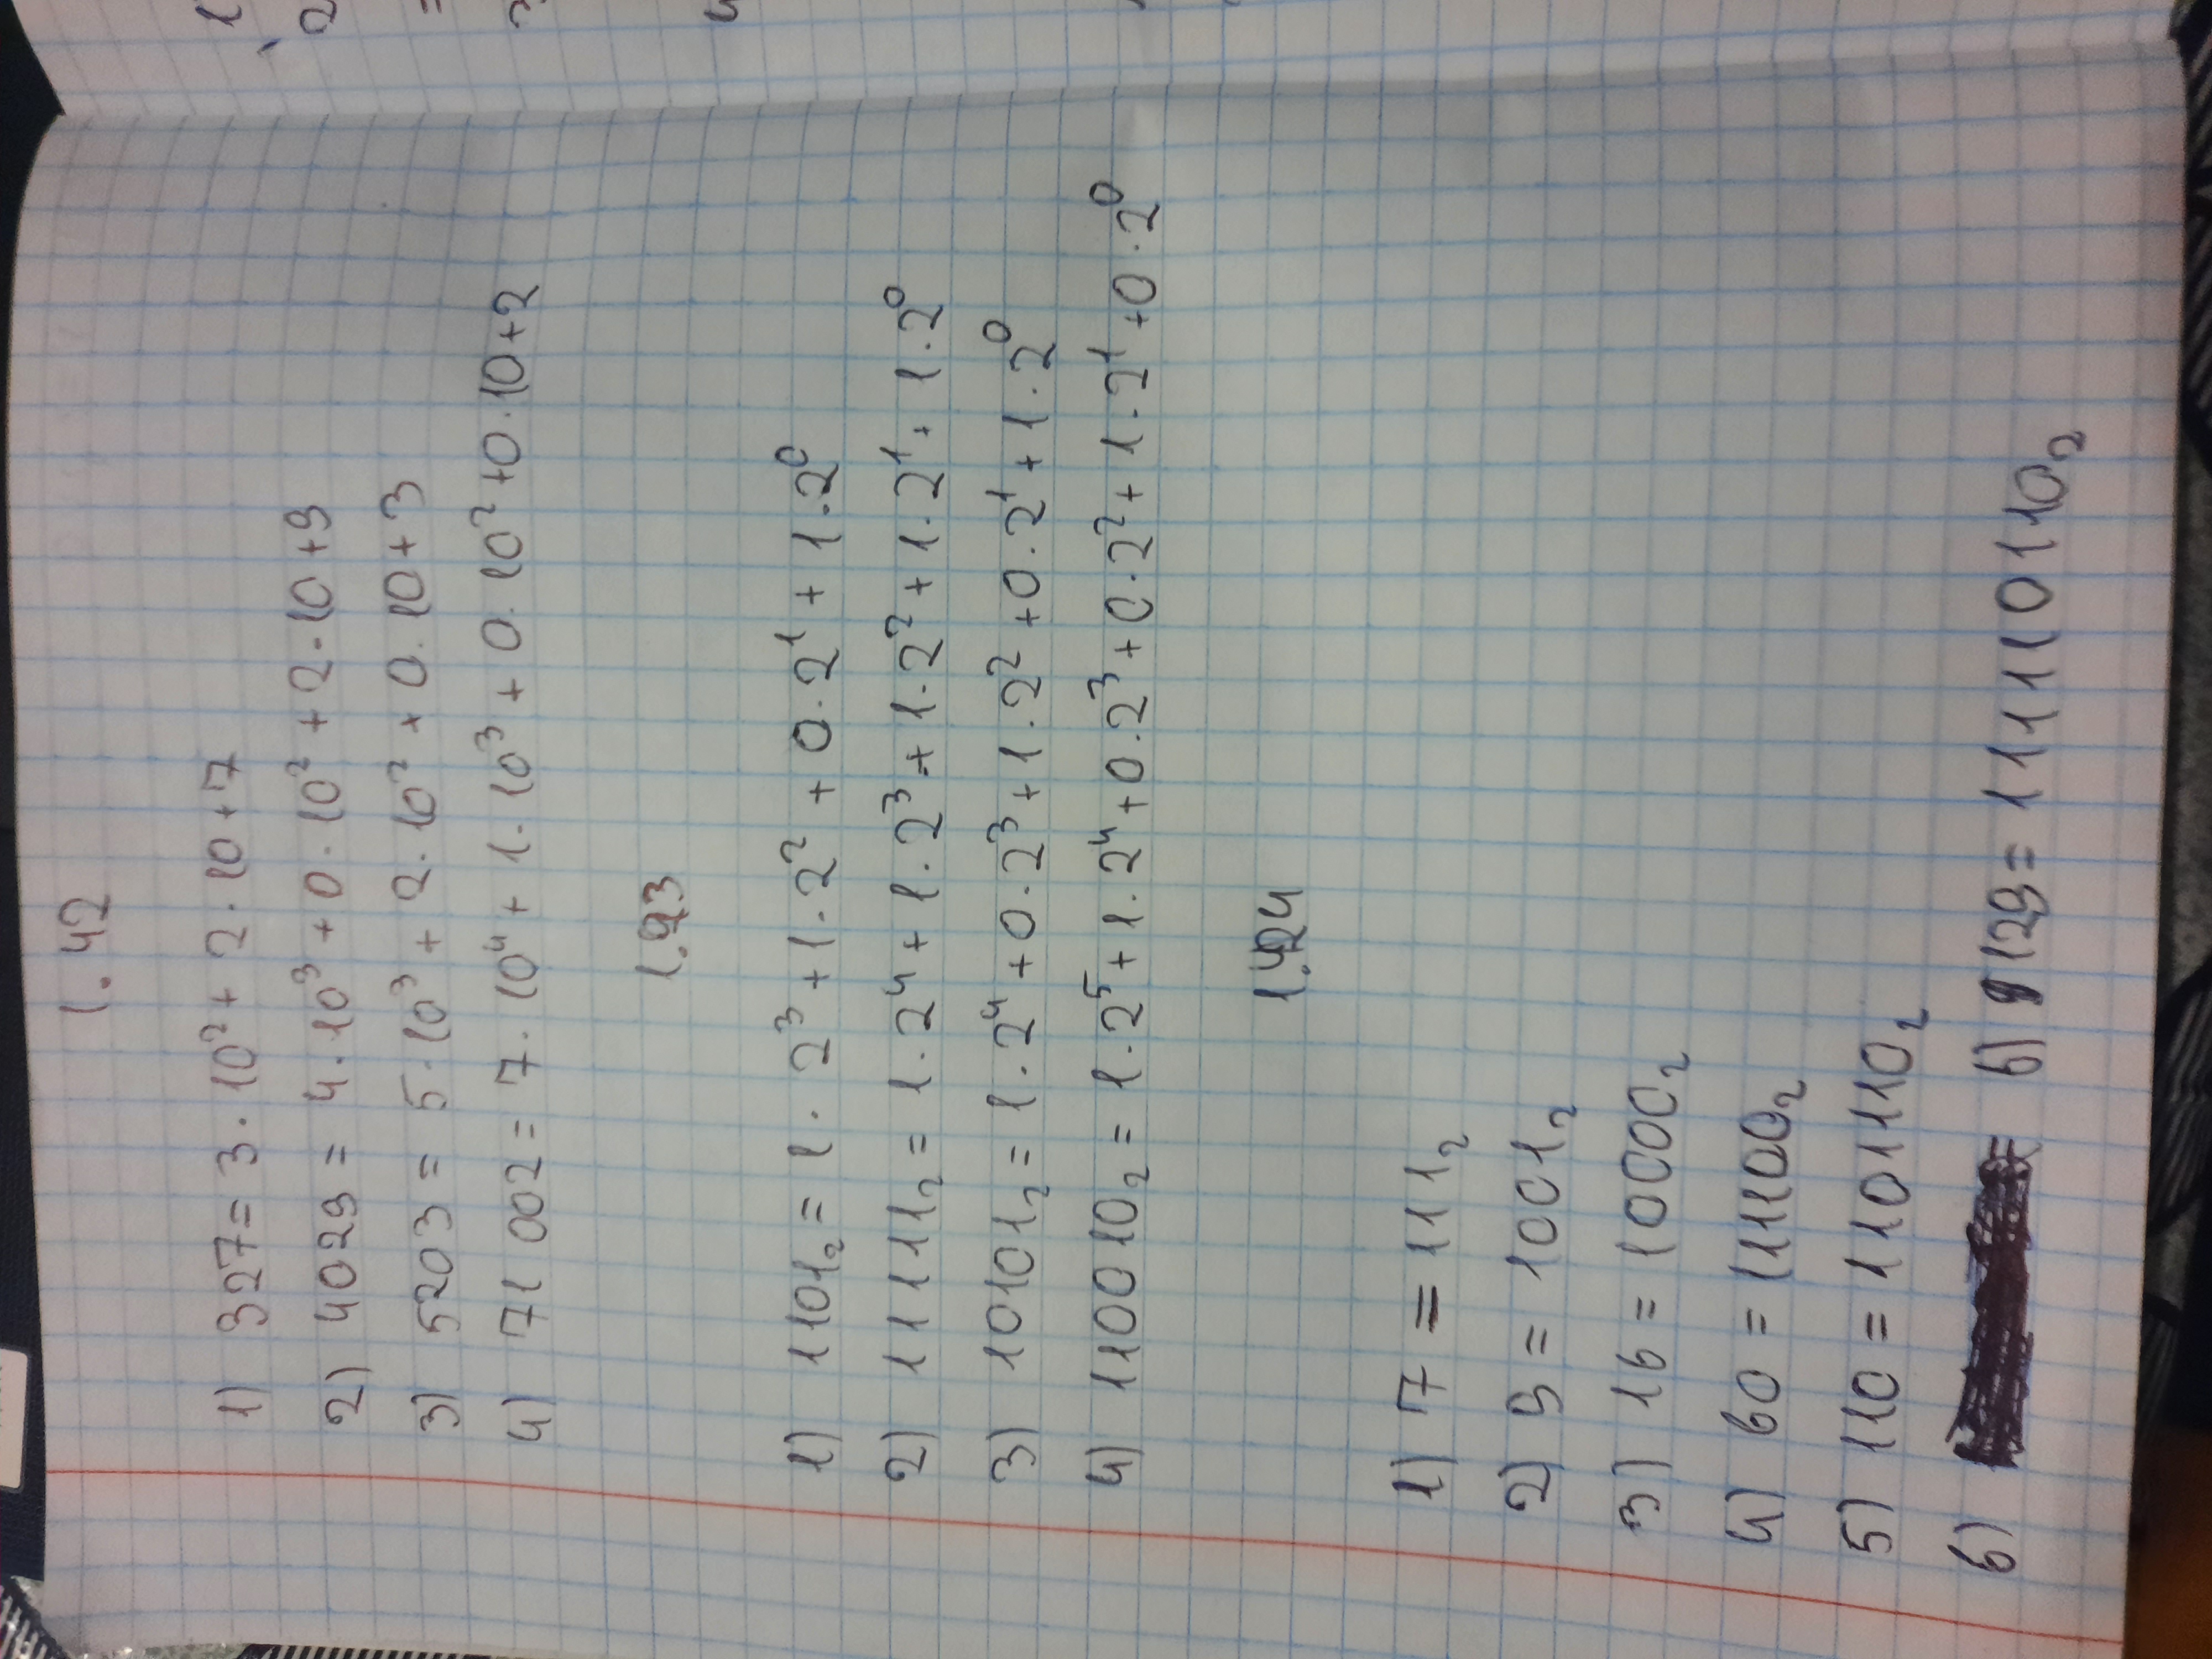 1.42
1) 327 = 3 · 10² + 2 · 10 + 7
2) 4029 = 4 · 10³ + 0 · 10² + 2 · 10 + 9
3) 5203 = 5 · 10³ + 2 · 10² + 0 · 10 + 3
4) 71 002 = 7 · 10⁴ + 1 · 10³ + 0 · 10² + 0 · 10 + 2
1) 1101₂ = 1 · 2³ + 1 · 2² + 0 · 2¹ + 1 · 2⁰
2) 11111₂ = 1 · 2⁴ + 1 · 2³ + 1 · 2² + 1 · 2¹ + 1 · 2⁰
3) 10101₂ = 1 · 2⁴ + 0 · 2³ + 1 · 2² + 0 · 2¹ + 1 · 2⁰
4) 110010₂ = 1 · 2⁵ + 1 · 2⁴ + 0 · 2³ + 0 · 2² + 1 · 2¹ + 0 · 2⁰
1) 7 = 111₂
2) 9 = 1001₂
3) 16 = 10000₂
4) 60 = 111100₂
5) 110 = 1101110₂
6) 6) 129 = 1111110110₂